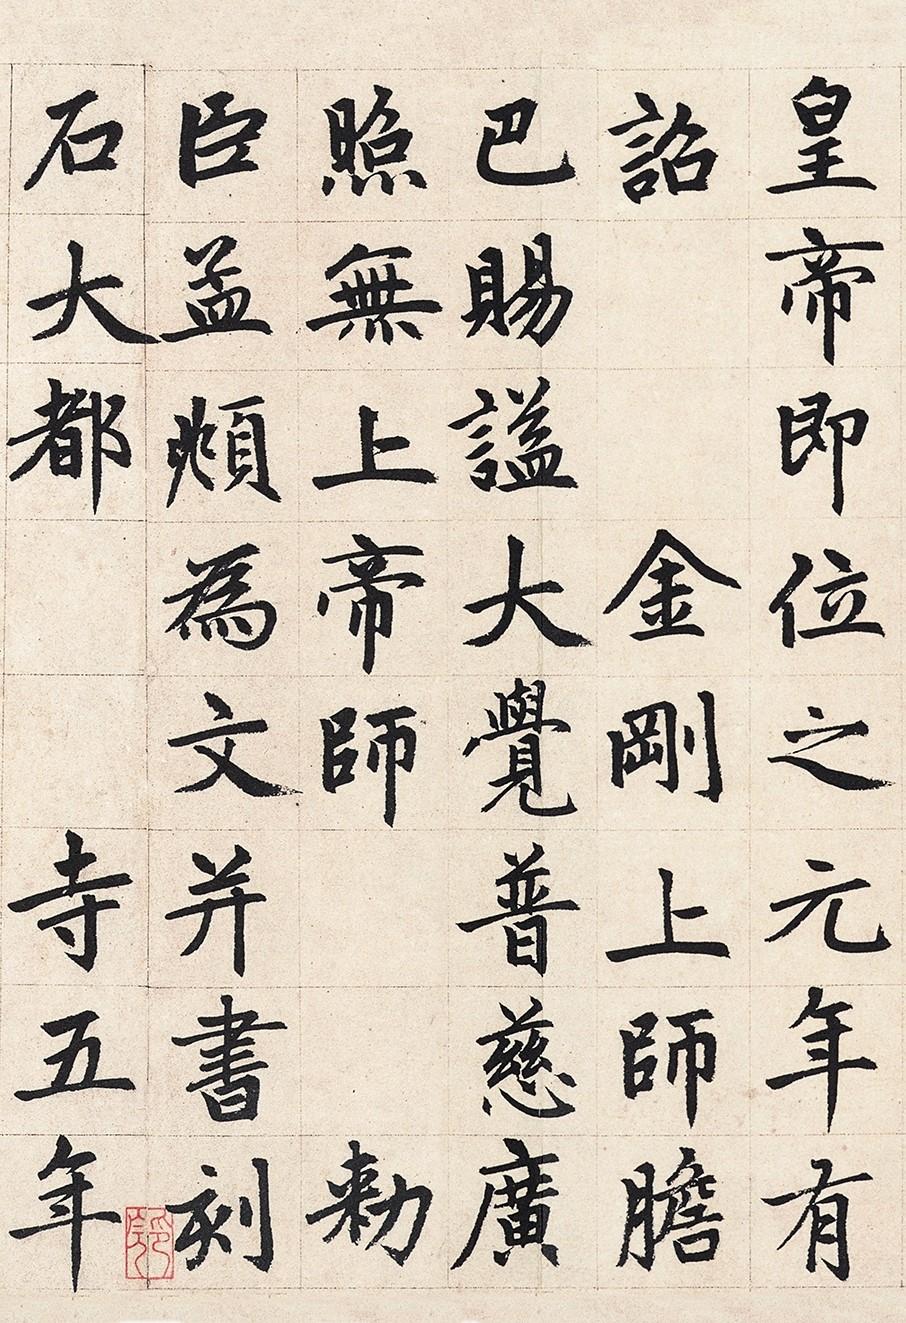 皇帝即位之元年有
詔金剛上師膽
巴賜謚大覺普慈廣
照無上帝師敕
臣孟頫為文并書刻
石大都寺五年